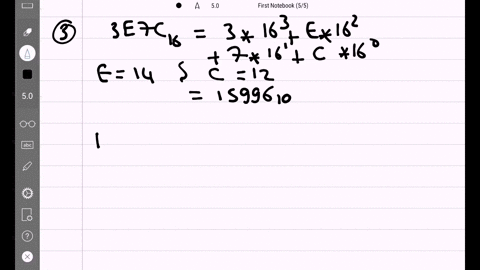 5.0 First Notebook (5/5)
③ 3E7C₁₆ = 3 * 16³ + E * 16²
+ 7 * 16¹ + C * 16⁰
E = 14 & C = 12
= 15996₁₀
5.0
abc